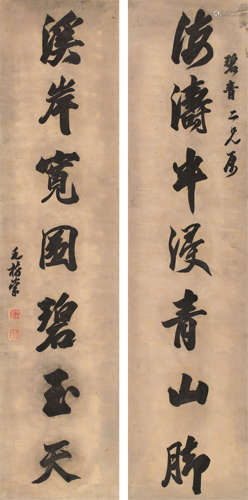 碧青二兄属
海濤中浸青山脚
溪岸寬圍碧玉天